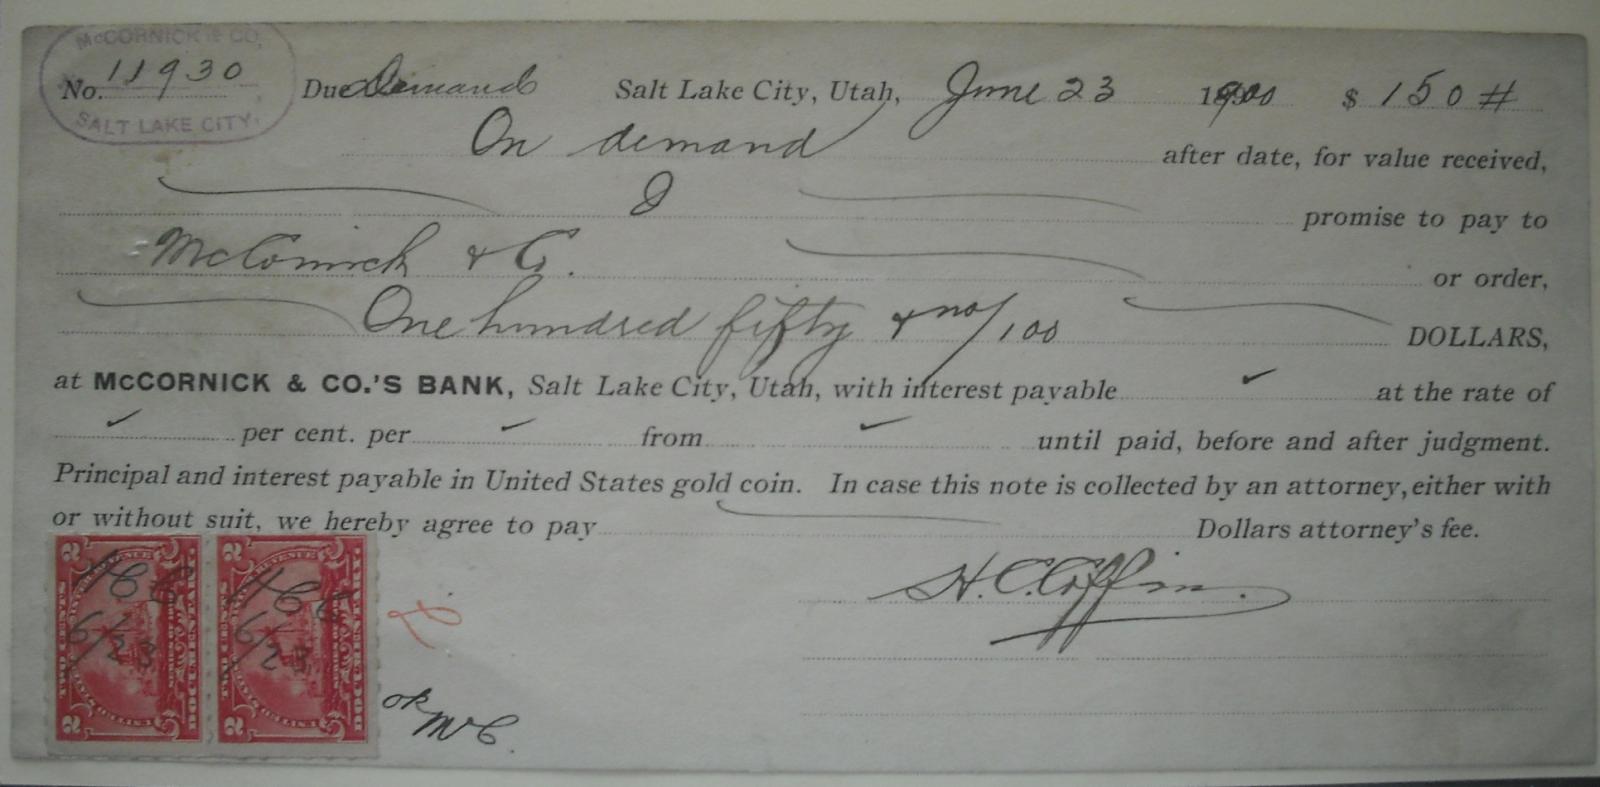 McCORNICK & CO.
No. 11930 Due Demand Salt Lake City, Utah, June 23 1900 $ 150 #
SALT LAKE CITY.
On demand after date, for value received,
I promise to pay to
McCornick & Co. or order,
One hundred fifty & no/100 DOLLARS,
at McCORNICK & CO.'S BANK, Salt Lake City, Utah, with interest payable ✓ at the rate of
✓ per cent. per ✓ from ✓ until paid, before and after judgment.
Principal and interest payable in United States gold coin. In case this note is collected by an attorney, either with
or without suit, we hereby agree to pay Dollars attorney's fee.
H. C. Coffin.
2 TWO CENTS DOCUMENTARY 2
HCC
6/23
2 TWO CENTS DOCUMENTARY 2
HCC
6/23
ok
McC.